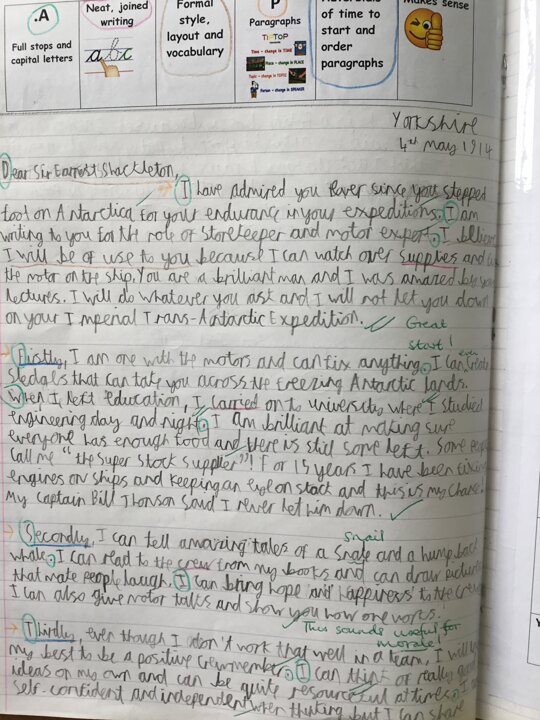 .A
Full stops and
capital letters
Neat, joined
writing
abc
Formal
style,
layout and
vocabulary
P
Paragraphs
TiPTOP
Time - change in TIME
Place - change in PLACE
Topic - change in TOPIC
Person - change in SPEAKER
of time to
start and
order
paragraphs
Makes sense
Yorkshire
4th May 1914
Dear Sir Earnest Shackleton,
I have admired you Ever since you stepped
foot on Antarctica for your endurance in your expeditions. I am
writing to you for the role of Storekeeper and motor expert. I believe
I will be of use to you because I can watch over supplies and
the motor on the ship. You are a brilliant man and I was amazed by your
lectures. I will do whatever you ask and I will not let you down
on your Imperial Trans-Antarctic Expedition.
Great
start!
Firstly, I am one with the motors and can fix anything. I can even create
Sledges that can take you across the freezing Antarctic lands.
When I left education, I carried on to university where I studied
engineering day and night. I am brilliant at making sure
everyone has enough food and there is still some left. Some people
call me "the Super Stock Supplier"! For 15 years I have been fixing
engines on ships and keeping an eye on stock and this is my chance.
My Captain Bill Thonson said I never let him down.
Snail
Secondly, I can tell amazing tales of a Snale and a hump back
whale. I can read to the crew from my books and can draw pictures
that make people laugh. I can bring hope and happiness to the crew.
I can also give motor talks and show you how one works.
This sounds useful for
morale!
Thirdly, even though I don't work that well in a team, I will try
my best to be a positive crew member. I can think of really good
ideas on my own and can be quite resourceful at times. I am
self-confident and independent when thinking but I can share